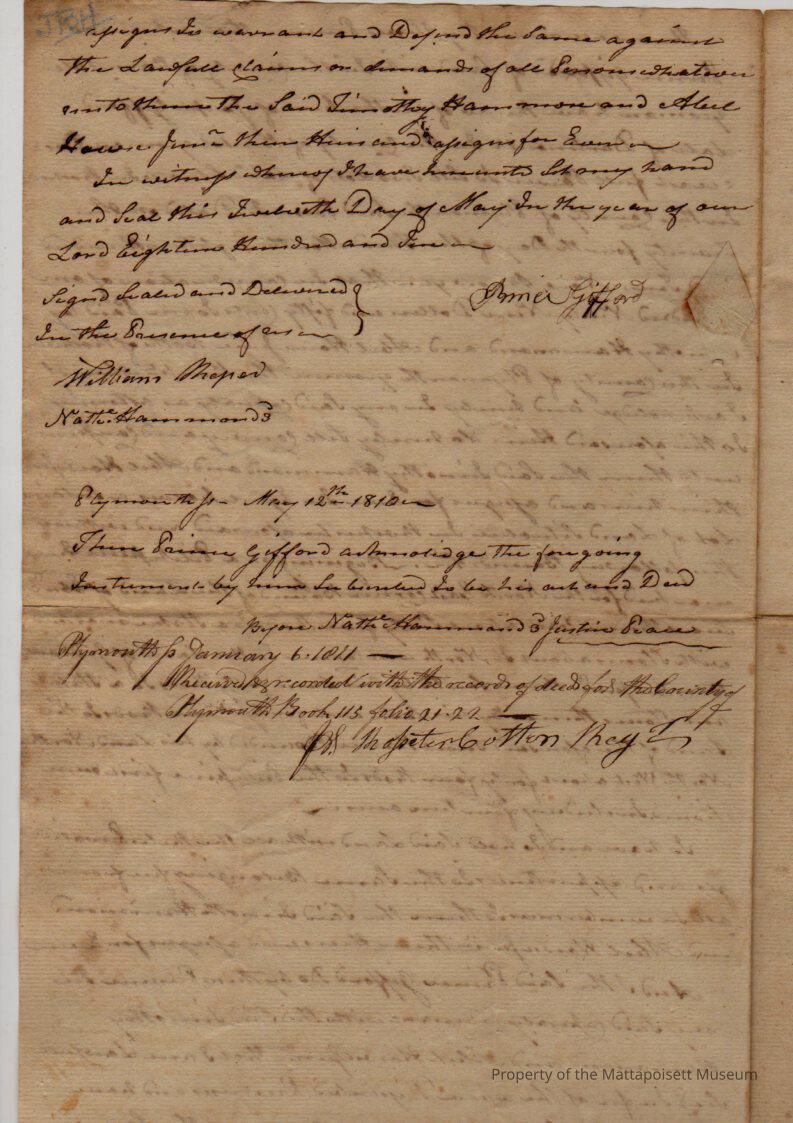 JBH
assigns To warrant and Defend the Same against
the Lawfull claims or demands of all Persons whatever
unto them the Said Timothy Hammon and Abel
House Junr their Heirs and assigns for Ever
In witness whereof I have hereunto Set my hand
and Seal this Twelvth Day of May In the year of our
Lord Eighteen Hundred and Ten
Signd Seald and Delivered
In the Presence of us
Prince Gifford
William
Nathl Hammond 3d
Plymouth Ss May 12th 1810
Then Prince Gifford acknoledge the foregoing
Instrument by him Subscribed To be his act and Deed
Before Nathl Hammond 3d Justice Peace
Plymouth Ss January 6. 1811
Received & recorded with the records of deeds for the County of
Plymouth Book 115 folio 21-22
Rossiter Cotton Regr
Property of the Mattapoisett Museum